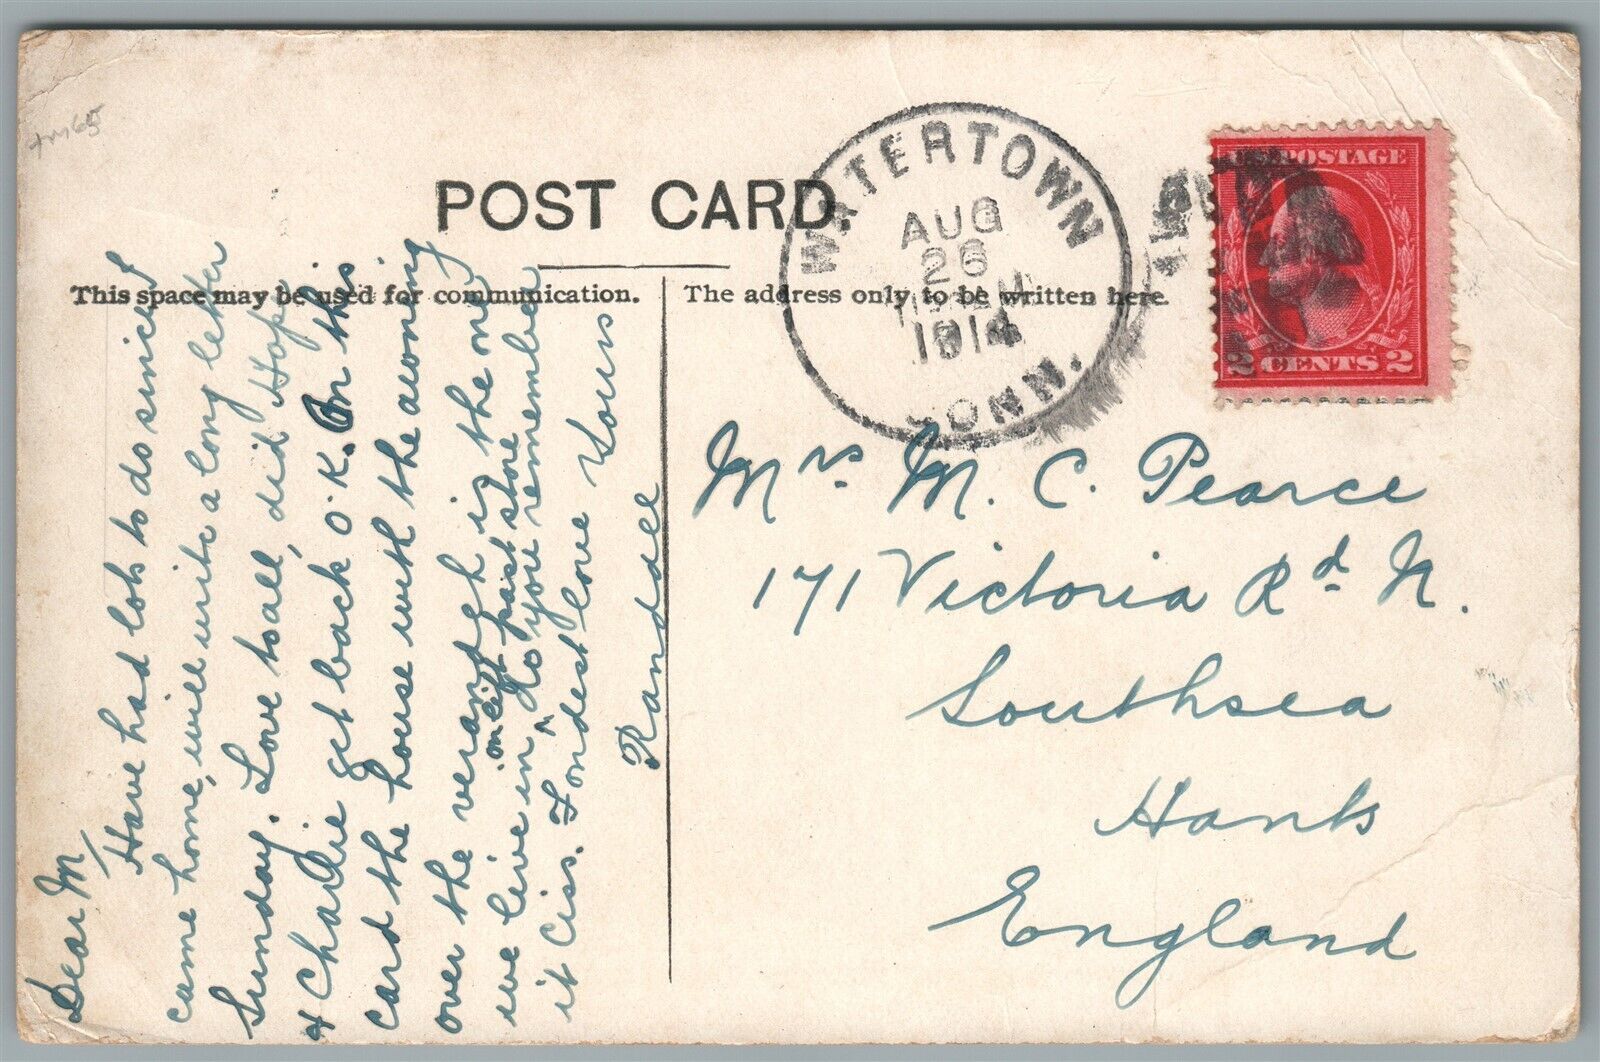 POST CARD.
This space may be used for communication.
The address only to be written here.
WATERTOWN
AUG
26
1914
CONN.
U.S. POSTAGE
2 CENTS 2
Dear M/
Have had lots to do since I
came home, will write a long letter
Sunday. Love to all, did Hope
& Charlie get back O'K. On this
card the house with the awning
over the verandgh is the one
we live in, on left past store
Do you remember
it Ciss. Fondest love Yours
Randall
Mrs M. C. Pearce
171 Victoria Rd N.
Southsea
Hants
England